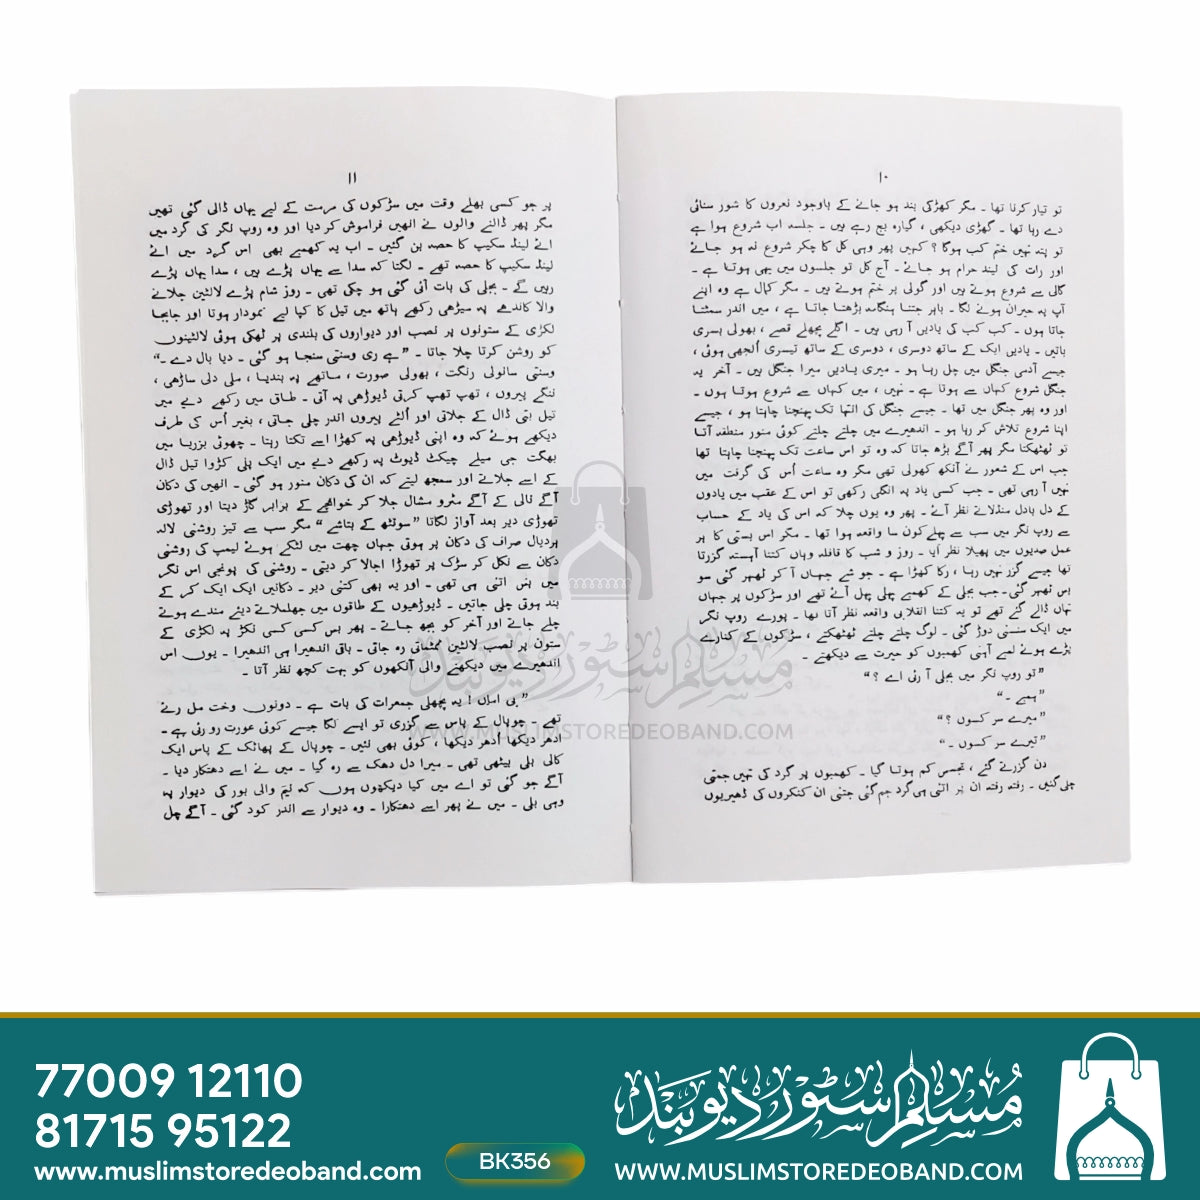 ۱۰
تو تیار کرنا تھا ۔ مگر کھڑکی بند ہو جانے کے باوجود نعروں کا شور سنائی
دے رہا تھا ۔ گھڑی دیکھی ، گیارہ بج رہے ہیں ۔ جلسہ اب شروع ہوا ہے
تو پتہ نہیں ختم کب ہوگا ؟ کہیں پھر وہی کل کا چکر شروع نہ ہو جائے
اور رات کی نیند حرام ہو جائے ۔ آج کل تو جلسوں میں یہی ہوتا ہے ۔
گالی سے شروع ہوتے ہیں اور گولی پر ختم ہوتے ہیں ۔ مگر کمال ہے وہ اپنے
آپ پہ حیران ہونے لگا ۔ باہر جتنا ہنگامہ بڑھتا جاتا ہے ، میں اندر سمٹتا
جاتا ہوں ۔ کب کب کی یادیں آ رہی ہیں ۔ اگلے پچھلے قصے ، بھولی بسری
باتیں ۔ یادیں ایک کے ساتھ دوسری ، دوسری کے ساتھ تیسری اُلجھی ہوئی ،
جیسے آدمی جنگل میں چل رہا ہو ۔ میری یادیں میرا جنگل ہیں ۔ آخر یہ
جنگل شروع کہاں سے ہوتا ہے ۔ نہیں ، میں کہاں سے شروع ہوتا ہوں ۔
اور وہ پھر جنگل میں تھا ۔ جیسے جنگل کی انتہا تک پہنچنا چاہتا ہو ، جیسے
اپنا شروع تلاش کر رہا ہو ۔ اندھیرے میں چلتے چلتے کوئی منور منطقہ آتا
تو ٹھٹھکتا مگر پھر آگے بڑھ جاتا کہ وہ تو اس ساعت تک پہنچنا چاہتا تھا
جب اس کے شعور نے آنکھ کھولی تھی مگر وہ ساعت اُس کی گرفت میں
نہیں آ رہی تھی ۔ جب کسی یاد پہ انگلی رکھی تو اس کے عقب میں یادوں
کے دل بادل منڈلاتے نظر آئے ۔ پھر وہ یوں چلا کہ اس کی یاد کے حساب
سے روپ نگر میں سب سے پہلے کون سا واقعہ ہوا تھا ۔ مگر اس بستی کا ہر
عمل صدیوں میں پھیلا نظر آیا ۔ روز و شب کا قافلہ وہاں کتنا آہستہ گزرتا
تھا جیسے گزر نہیں رہا ، رکا کھڑا ہے ۔ جو شے جہاں آ کر ٹھہر گئی سو
بس ٹھہر گئی۔ جب بجلی کے کھمبے چلی چلے آئے تھے اور سڑکوں پر جہاں
تہاں ڈالے گئے تھے تو یہ کتنا انقلابی واقعہ نظر آتا تھا ۔ پورے روپ نگر
میں ایک سنسنی دوڑ گئی ۔ لوگ چلتے چلتے ٹھٹھکتے ، سڑکوں کے کنارے
پڑے ہوئے لمبے آہنی کھمبوں کو حیرت سے دیکھتے ۔
”تو روپ نگر میں بجلی آ رئی اے ؟“
”ہمبے ۔“
”میرے سر کسوں ؟“
”تیرے سر کسوں ۔“
دن گزرتے گئے ، تجسس کم ہوتا گیا ۔ کھمبوں پر گرد کی تہیں جمتی
چلی گئیں ۔ رفتہ رفتہ ان پر اتنی ہی گرد جم گئی جتنی ان کنکروں کی ڈھیریوں
۱۱
پر جو کسی بھلے وقت میں سڑکوں کی مرمت کے لیے یہاں ڈالی گئی تھیں
مگر پھر ڈالنے والوں نے انھیں فراموش کر دیا اور وہ روپ نگر کی گرد میں
اٹے لینڈ سکیپ کا حصہ بن گئیں ۔ اب یہ کھمبے بھی اس گرد میں اٹے
لینڈ سکیپ کا حصہ تھے ۔ لگتا کہ سدا سے یہاں پڑے ہیں ، سدا یہاں پڑے
رہیں گے ۔ بجلی کی بات آئی گئی ہو چکی تھی ۔ روز شام پڑے لالٹین جلانے
والا کاندھے پہ سیڑھی رکھے ہاتھ میں تیل کا کپا لیے نمودار ہوتا اور جابجا
لکڑی کے ستونوں پر نصب اور دیواروں کی بلندی پر ٹھکی ہوئی لالٹینوں
کو روشن کرتا چلا جاتا ۔ ”ہے ری وسنتی سنجا ہو گئی ۔ دیا بال دے ۔“
وسنتی سانولی رنگت ، بھولی صورت ، ماتھے پہ بندیا ، ملی دلی ساڑھی ،
ننگے پیروں ، تھپ تھپ کرتی ڈیوڑھی پہ آتی ۔ طاق میں رکھے دیے میں
تیل بتی ڈال کے جلاتی اور اُلٹے پیروں اندر چلی جاتی ، بغیر اُس کی طرف
دیکھے ہوئے کہ وہ اپنی ڈیوڑھی پہ کھڑا اسے تکتا رہتا ۔ چھوٹی بزریا میں
بھگت جی میلے چیکٹ ڈیوٹ پہ رکھے دے میں ایک پلی کڑوا تیل ڈال
کے اسے جلاتے اور سمجھ لیتے کہ ان کی دکان منور ہو گئی ۔ انھیں کی دکان
آگے نالی کے آگے مٹرو مشال جلا کر خوانچے کے برابر گاڑ دیتا اور تھوڑی
تھوڑی دیر بعد آواز لگاتا ”سونٹھ کے بتاشے“ مگر سب سے تیز روشنی لالہ
ہردیال صراف کی دکان پر ہوتی جہاں چھت میں لٹکے ہوئے لیمپ کی روشنی
دکان سے نکل کر سڑک پر تھوڑا اجالا کر دیتی ۔ روشنی کی پونجی اس نگر
میں بس اتنی ہی تھی ۔ اور یہ بھی کتنی دیر ۔ دکانیں ایک ایک کر کے
بند ہوتی چلی جاتیں ۔ ڈیوڑھیوں کے طاقوں میں جھلملاتے دیئے مندے ہوتے
چلے جاتے اور آخر کو بجھ جاتے ۔ پھر بس کسی کسی نکڑ پہ لکڑی کے
ستون پر نصب لالٹین ٹمٹماتی رہ جاتی ۔ باقی اندھیرا ہی اندھیرا ۔ یوں اس
اندھیرے میں دیکھنے والی آنکھوں کو بہت کچھ نظر آتا ۔
”بی اماں ! یہ پچھلی جمعرات کی بات ہے ۔ دونوں وخت مل رئے
تھے ۔ چوپال کے پاس سے گزری تو ایسے لگا جیسے کوئی عورت رو رئی ہے ۔
ادھر دیکھا اُدھر دیکھا ، کوئی بھی نئیں ۔ چوپال کے پھاٹک کے پاس ایک
کالی بلی بیٹھی تھی ۔ میرا دل دھک سے رہ گیا ۔ میں نے اسے دھتکار دیا ۔
آگے جو گئی تو اے میں کیا دیکھوں ہوں کہ نیم والی بور کی دیوار پہ
وہی بلی ۔ میں نے پھر اسے دھتکارا ۔ وہ دیوار سے اندر کود گئی ۔ آگے چل
مسلم سٹور دیوبند
WWW.MUSLIMSTOREDEOBAND.COM
77009 12110
81715 95122
www.muslimstoredeoband.com
BK356
مسلم سٹور دیوبند
WWW.MUSLIMSTOREDEOBAND.COM